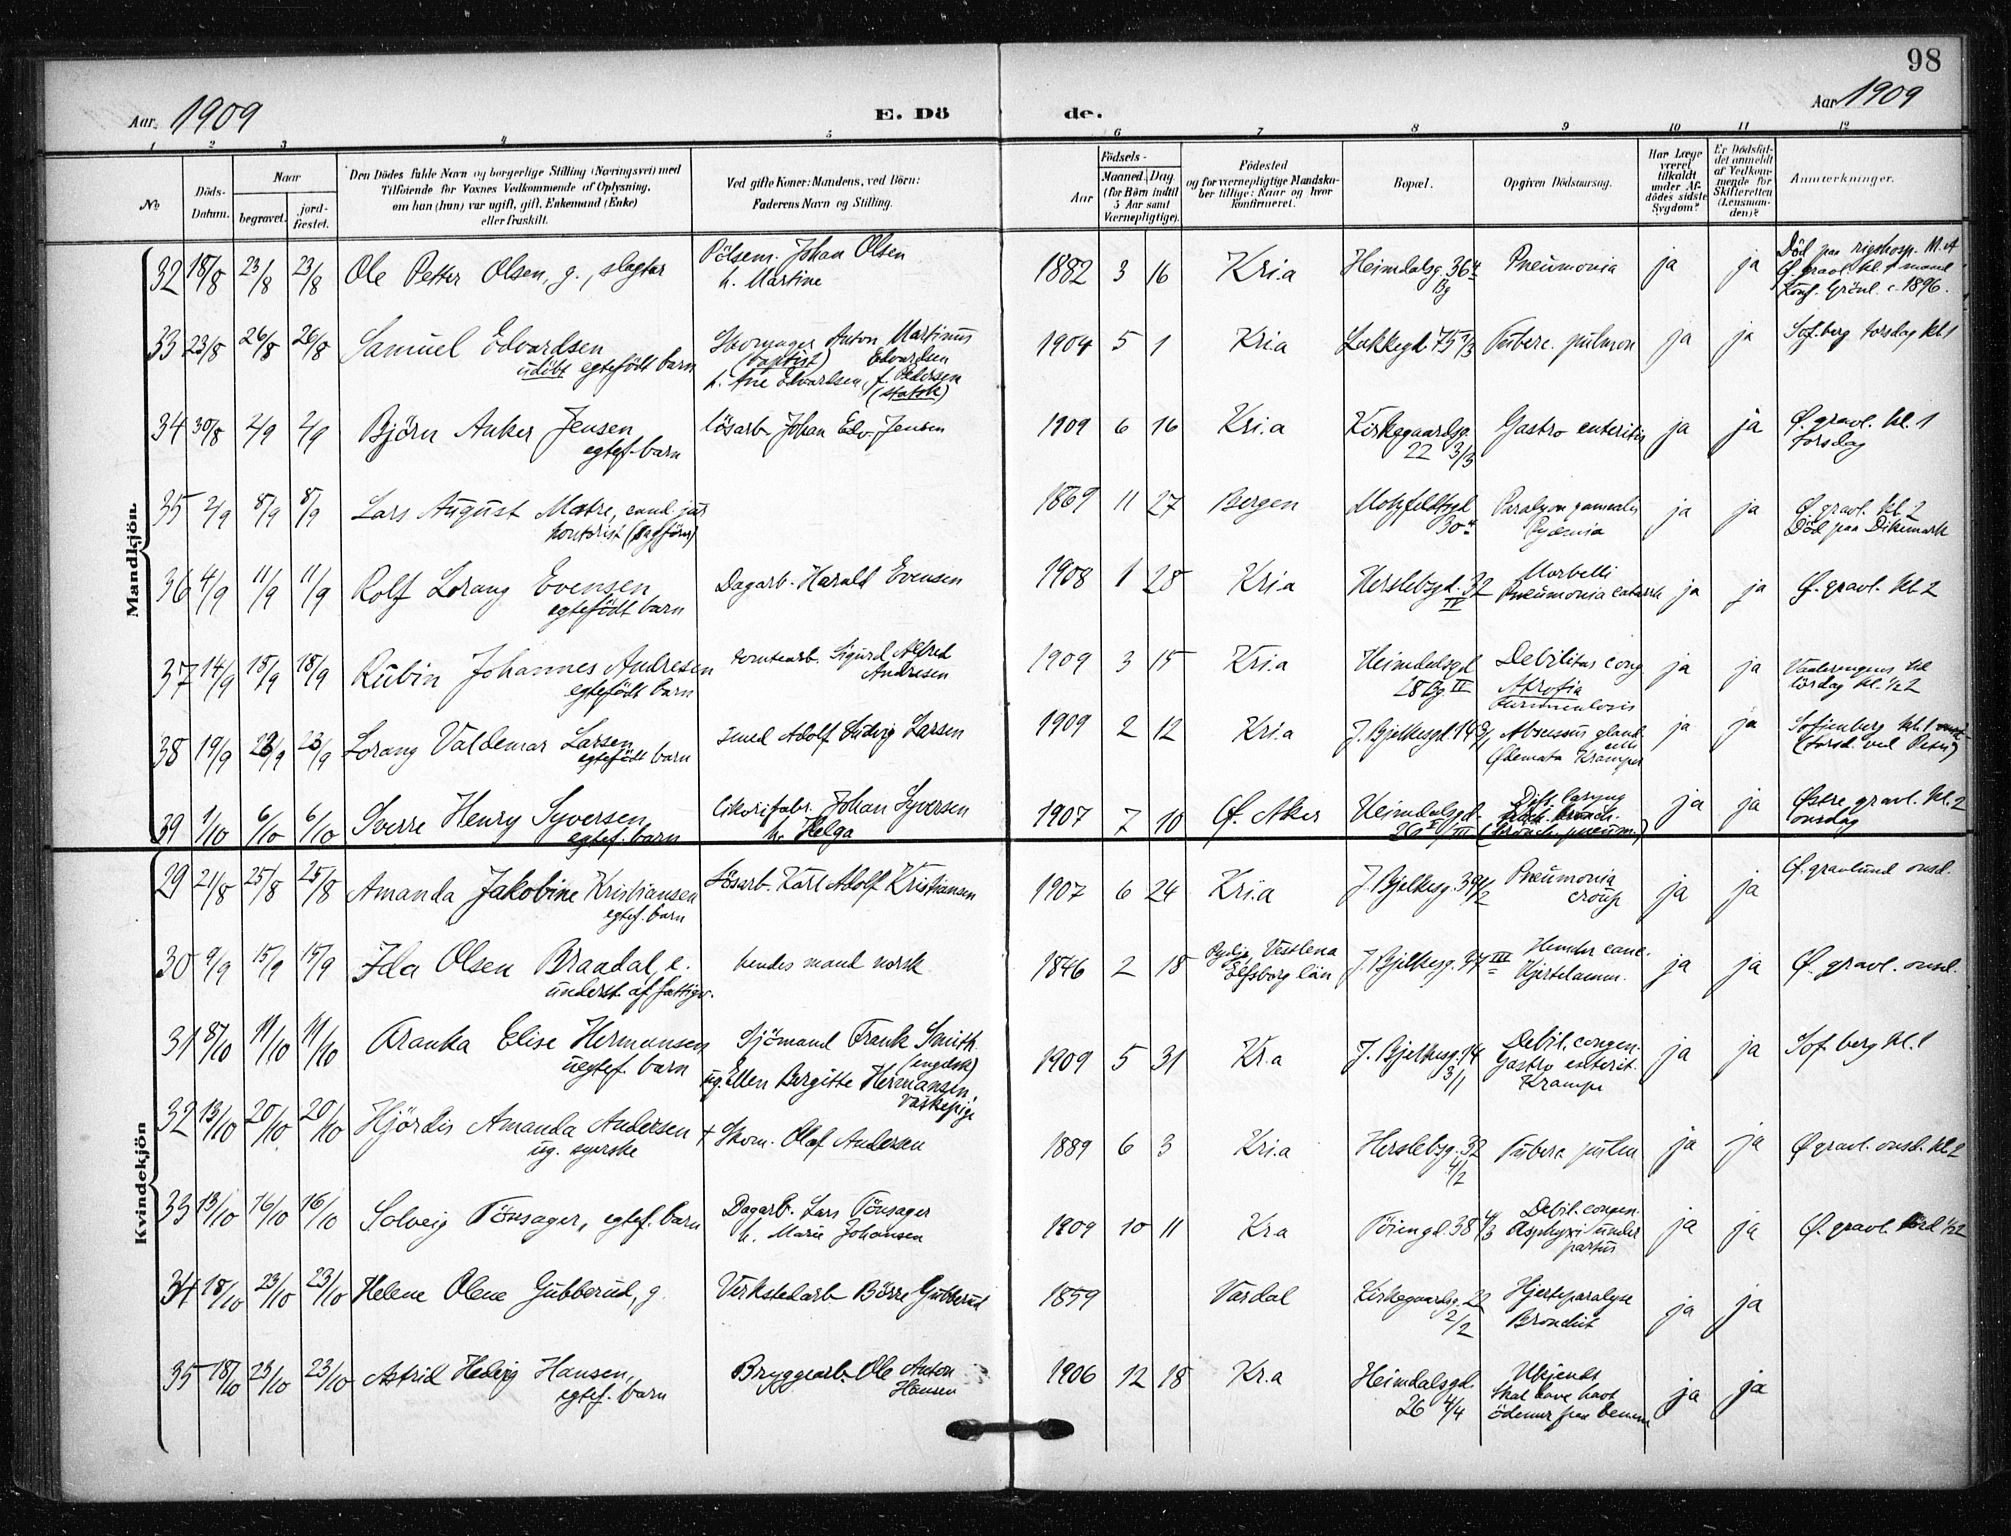 98
Aar 1909
E. Döde.
Aar 1909
1 2 3 4 5 6 7 8 9 10 11 12
No
Döds-Datum.
Naar
begravet.
jord-fæstet.
Den Dödes fulde Navn og borgerlige Stilling (Næringsvei) med
Tilføiende for Voxnes Vedkommende af Oplysning,
om han (hun) var ugift, gift, Enkemand (Enke)
eller fraskilt.
Ved gifte Koner: Mandens, ved Börn:
Faderens Navn og Stilling.
Födsels-
Aar
Maaned. Dag.
(for Börn indtil
5 Aar samt
Værnepligtige).
Födested
og for værnepligtige Mandska-
ber tillige: Naar og hvor
konfirmeret.
Bopæl.
Opgiven Dödsaarsag.
Har Læge
været
tilkaldt
under Af-
dödes sidste
Sygdom?
Er Dödsfal-
det anmeldt
af Vedkom-
mende for
Skifteretten
(Lensman-
den)?
Anmerkninger.
Mandkjön.
32 18/8 23/8 23/8 Ole Petter Olsen, g., slagter Pölsem. Johan Olsen
h. Martine
1882 3 16 Kri.a Heimdalsg. 36 4
Bg
Pneumonia ja ja Död paa rigshosp.
Ø. gravl. kl. 1
Konf. Grönl. c. 1896.
33 23/8 26/8 26/8 Samuel Edvardsen
udöbt egtefödt barn
Anton Martinus
(baptist) Edvardsen
h. Ane Edvardsen, f. Pedersen
(statsk)
1904 5 1 Kri.a Lakkegd. 75 1/3 Tuberc. pulmon ja ja Sof.berg torsdag kl. 1
34 30/8 2/9 2/9 Björn Anker Jensen
egtef. barn
lösarb. Johan Edv. Jensen
1909 6 16 Kri.a Kirkegaardsg.
22 3/3
Gastro enteritis ja ja Ø. gravl. kl. 1
torsdag
35 2/9 8/9 8/9 Lars August Matre, cand. jur.
kontorist
1869 11 27 Bergen Motzfeldtsgd
30
Pyæmia
ja ja Ø. gravl. kl. 2
Död paa Dikemark
36 4/9 11/9 11/9 Rolf Lorang Evensen
egtefödt barn
Dagarb. Harald Evensen
1908 1 28 Kri.a Herslebsgd. 32
IV
Morbilli
Pneumonia catarrh ja ja Ø. gravl. kl. 2
37 14/9 18/9 18/9 Rubin Johannes Andresen
egtefödt barn
tomtearb. Sigurd Alfred
Andresen
1909 3 15 Kri.a Heimdalsgd
28 Bg II
Debilitas cong
Atrofia
ja ja Vaalerengens kl.
lördag kl. 1/2 2
38 19/9 23/9 23/9 Lorang Valdemar Larsen
egtefödt barn
Smed Adolf Ludvig Larsen
1909 2 12 Kri.a J. Bjelkesgd. 14 3/1 Abscessus gland
Ødemata Kramper
ja ja Sofienberg kl. 1
39 1/10 6/10 6/10 Sverre Henry Syversen
egtef. barn
Cikorifabr. Johan Syversen
h. Helga
1907 7 10 Ø. Aker Heimdalsgd.
26 II/III
Dift. laryng
(Bronch. pneum.)
ja ja Østre gravl. kl. 2
onsdag
Kvindekjön
29 21/8 25/8 25/8 Amanda Jakobine Kristiansen
egtef. barn
Lösarb. Karl Adolf Kristiansen
1907 6 24 Kri.a J. Bjelkesg. 39 4/2 Pneumonia
croup
ja ja Ø. gravlund onsd.
30 9/9 15/9 15/9 Ida Olsen Braadal, e.
underst. af fattigv.
hendes mand norsk
1846 2 18 Vestlena
Elfsborg län
J. Bjelkesg. III
Hjertelamm.
ja ja Ø. gravl. onsd.
31 8/10 11/10 11/10 Aranka Elise Hermansen
uegtef. barn
Sjömand Frank Smith
(engelsk)
ug. Ellen Bergitte Hermansen,
vaskepige
1909 5 31 Kr.a J. Bjelkesg. 14
3/1
Debil. congen.
Gastro enterit.
Krampe
ja ja Sof. berg kl. 1
32 13/10 20/10 20/10 Hjördis Amanda Andersen
ug. syerske
+ Skom. Olaf Andersen
1889 6 3 Kri.a Herslebsg. 32
4/2
Tuberc. pulm ja ja Ø gravl. onsd. kl. 2
33 13/10 16/10 16/10 Solveig Tönsager, egtef. barn Dagarb. Lars Tönsager
h. Marie Johansen
1909 10 11 Kr.a Töiengd. 38 4/3 Debil. congen.
Asphyxi under
partus
ja ja Ø. gravl. lörd 1/2 2
34 18/10 23/10 23/10 Helene Olene Gubberud, g. Verkstedarb. Börre Gubberud
1859 Vardal Kirkegaardsg. 22
2/2
Hjerteparalyse
Bronchit
ja ja
35 18/10 23/10 23/10 Astrid Hedvig Hansen,
egtef. barn
Bryggearb. Ole Anton
Hansen
1906 12 18 Kr.a Heimdalsgd.
26 4/4
Ukjendt
skal have havt
ödemer paa benene
ja ja